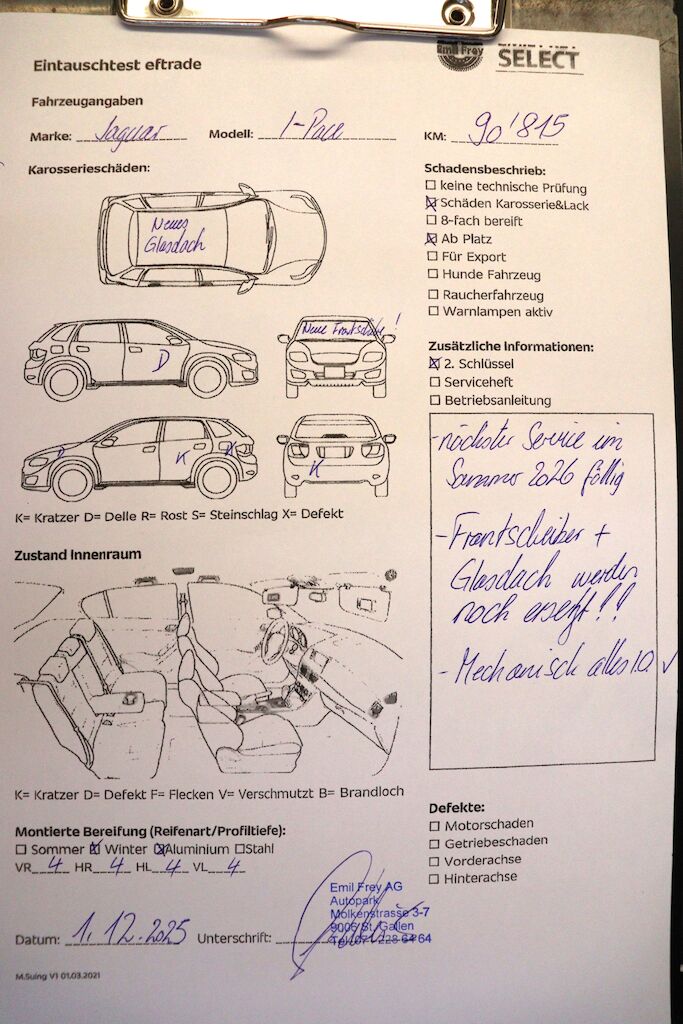 Emil Frey
EMIL FREY
SELECT
Eintauschtest eftrade
Fahrzeugangaben
Marke: Jaguar Modell: I-Pace KM: 90'815
Karosserieschäden:
Neues
Glasdach
Neue Frontscheibe!
D
D K K
K
K= Kratzer D= Delle R= Rost S= Steinschlag X= Defekt
Schadensbeschrieb:
☐ keine technische Prüfung
☒ Schäden Karosserie&Lack
☐ 8-fach bereift
☒ Ab Platz
☐ Für Export
☐ Hunde Fahrzeug
☐ Raucherfahrzeug
☐ Warnlampen aktiv
Zusätzliche Informationen:
☒ 2. Schlüssel
☐ Serviceheft
☐ Betriebsanleitung
- nächster Service im
Sommer 2026 fällig
- Frontscheiber +
Glasdach werden
noch ersetzt!!
- Mechanisch alles i.O. ✓
Zustand Innenraum
K= Kratzer D= Defekt F= Flecken V= Verschmutzt B= Brandloch
Montierte Bereifung (Reifenart/Profiltiefe):
☐ Sommer ☒ Winter ☒ Aluminium ☐ Stahl
VR 4 HR 4 HL 4 VL 4
Defekte:
☐ Motorschaden
☐ Getriebeschaden
☐ Vorderachse
☐ Hinterachse
Datum: 1.12.2025 Unterschrift:
Emil Frey AG
Autopark
Molkenstrasse 3-7
9006 St. Gallen
Tel. 071 228 64 64
M.Suing V1 01.03.2021